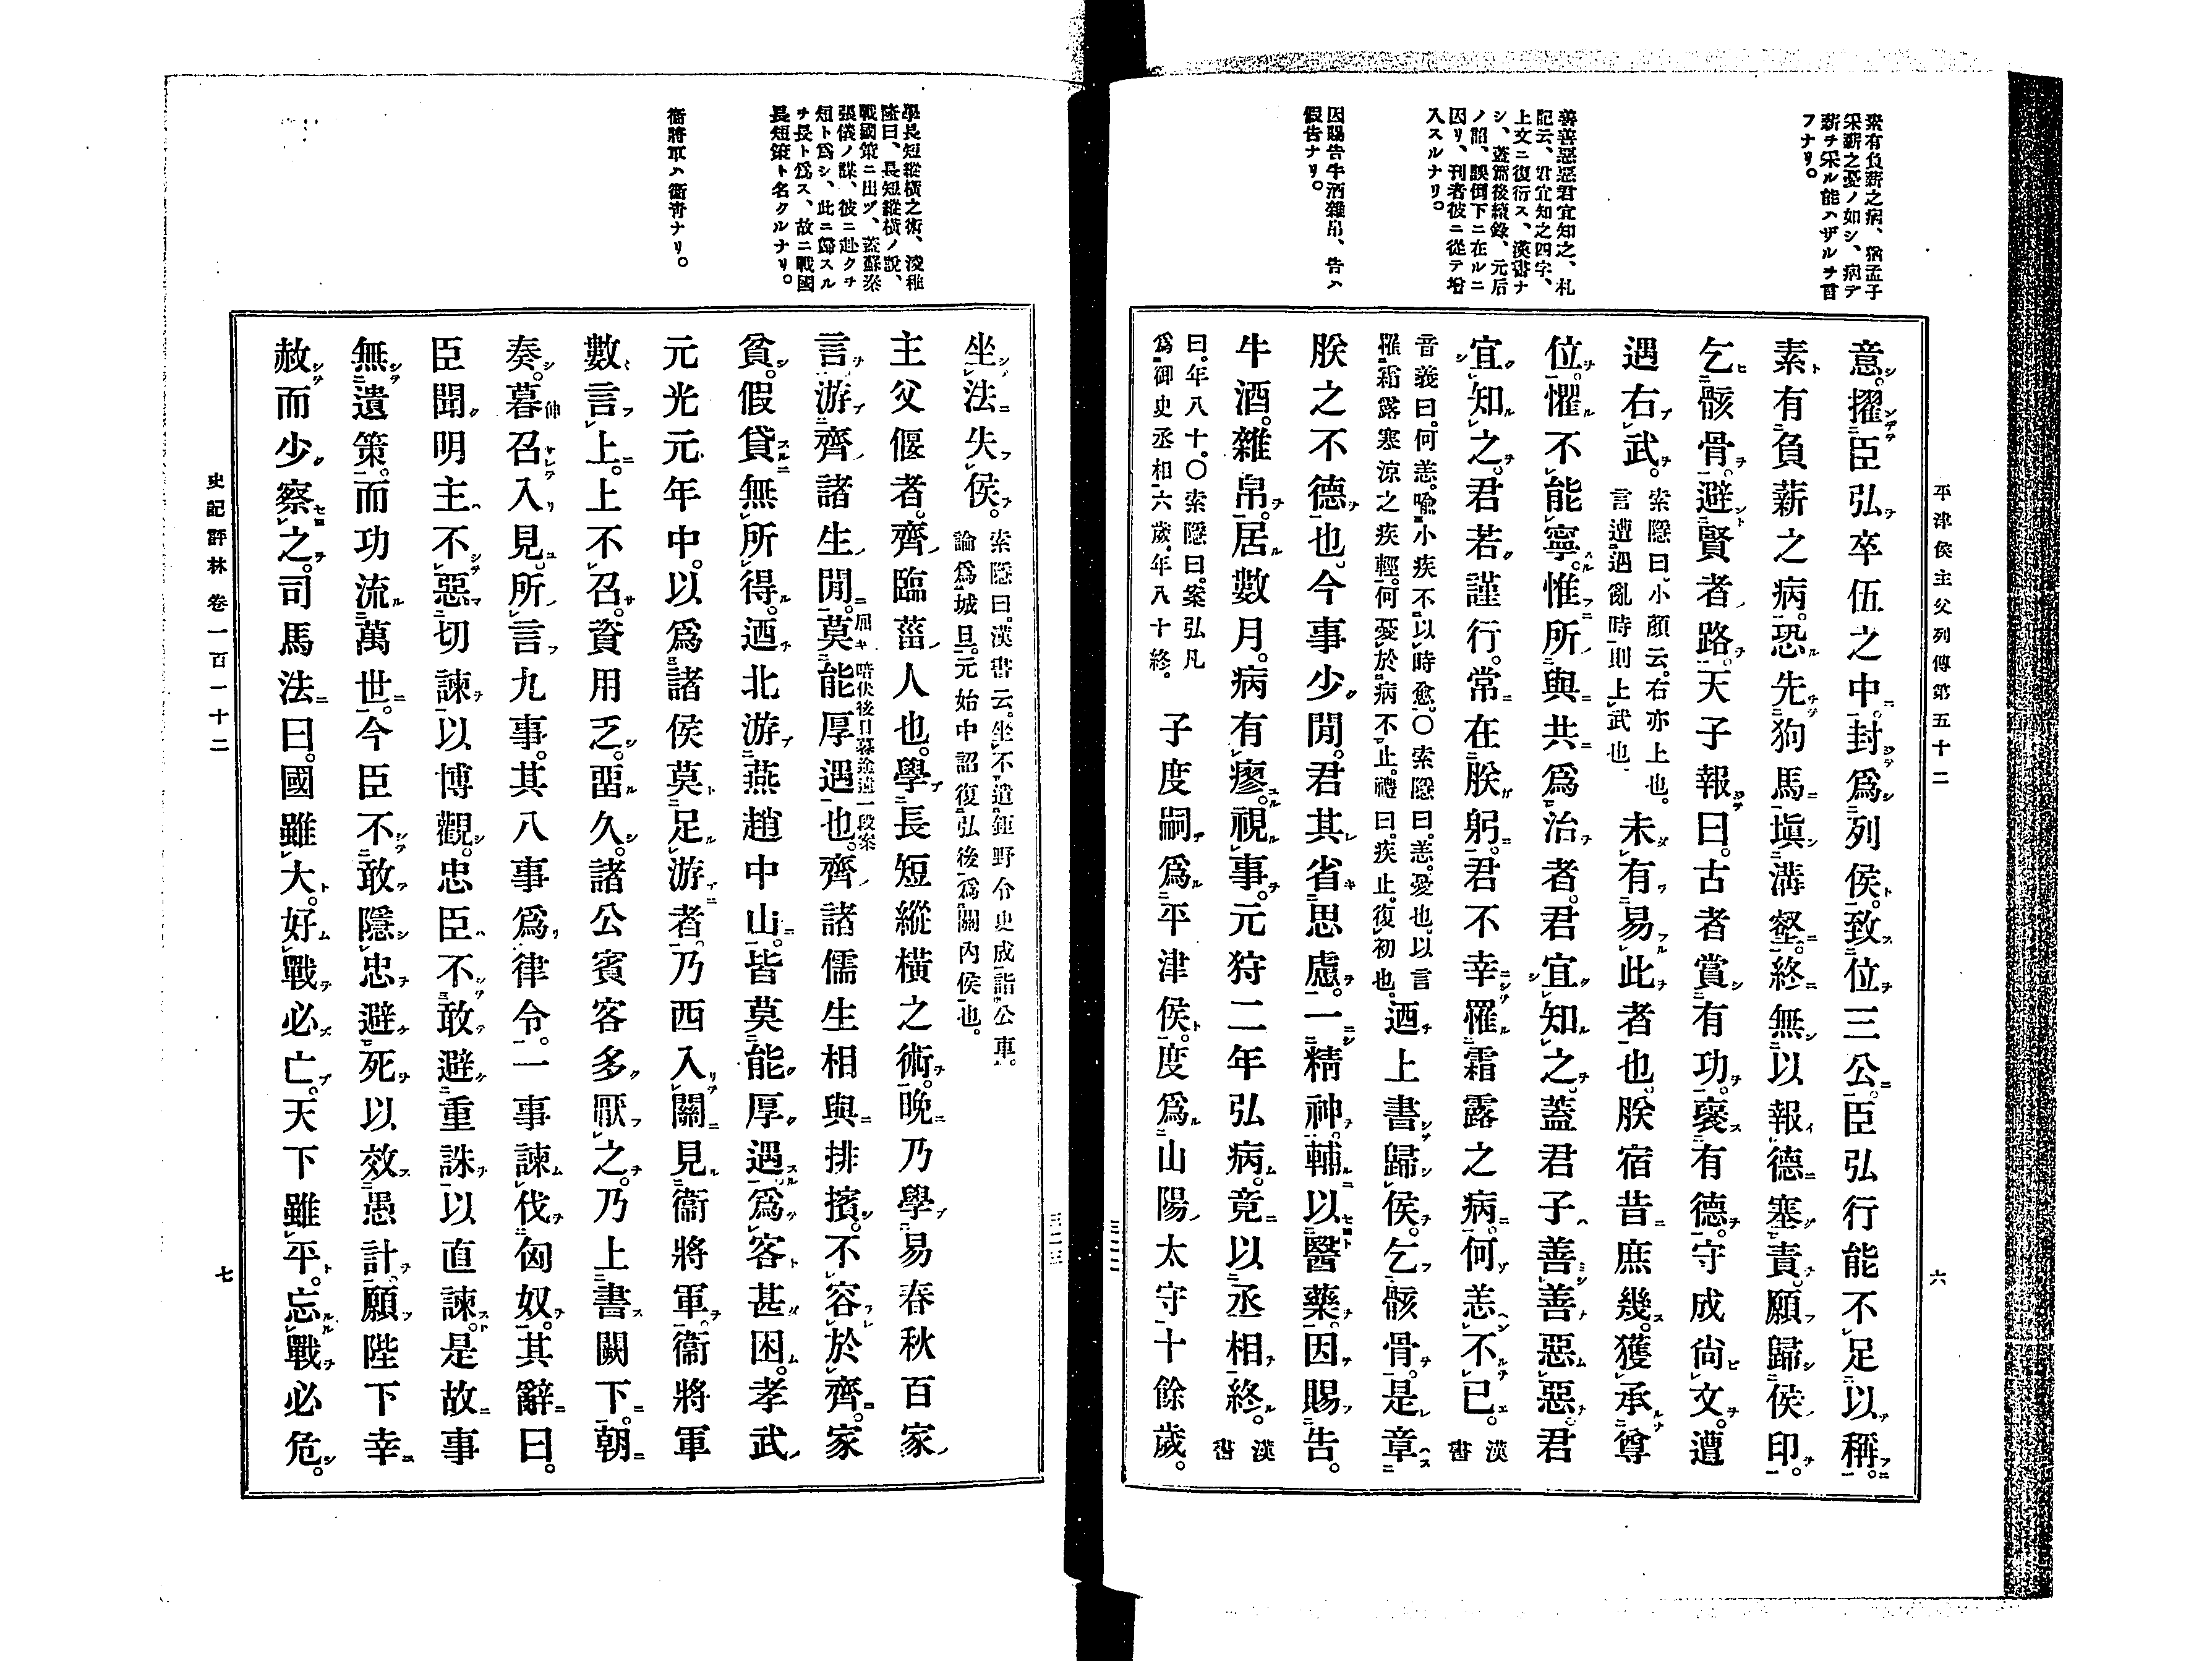 平津侯主父列傳第五十二
六
素有負薪之病、猶孟子
采薪之憂ノ如シ、病デ
薪チ采ル能ハザルチ言
フナリ。
善善惡惡君宜知之、札
記云、君宜知之四字、
上文ニ復衍ス、漢書ナ
シ、蓋篇後續錄、元后
ノ詔、誤倒下ニ在ルニ
因リ、刊者彼ニ從テ增
入スルナリ。
因賜告牛酒雜帛、告ハ
假告ナリ。
意。擢臣弘卒伍之中。封爲列侯。致位三公。臣弘行能不足以稱。
素有負薪之病。恐先狗馬塡溝壑。終無以報德塞責。願歸侯印。
乞骸骨。避賢者路。天子報曰。古者賞有功。襃有德。守成尙文。遭
遇右武。索隱曰。小顏云。右亦上也。言遭遇亂時則上武也。未有易此者也。朕宿昔庶幾。獲承尊
位。懼不能寧。惟所與共爲治者。君宜知之。蓋君子善善惡惡。君
宜知之。君若謹行。常在朕躬。君不幸罹霜露之病。何恙不已。漢書
音義曰。何恙。喩小疾不以時愈。〇索隱曰。恙。憂也。以言
罹霜露寒涼之疾輕。何憂於病不止。禮曰。疾止。復初也。迺上書歸侯。乞骸骨。是章
朕之不德也。今事少閒。君其省思慮。一精神。輔以醫藥。因賜告。
牛酒。雜帛。居數月。病有瘳。視事。元狩二年弘病。竟以丞相終。漢書
曰。年八十。〇索隱曰。案弘凡
爲御史丞相六歲。年八十終。子度嗣爲平津侯。度爲山陽太守十餘歲。
三二二
三二三
學長短縱橫之術、凌稚
隆曰、長短縱橫ノ說、
戰國策ニ出ヅ、蓋蘇秦
張儀ノ謀、彼ニ赴クチ
短ト爲シ、此ニ歸スル
チ長ト爲ス、故ニ戰國
長短策ト名クルナリ。
衞將軍ハ衞靑ナリ。
坐法失侯。索隱曰。漢書云。坐不遣鉅野令史成詣公車。
論爲城旦。元始中詔復弘後爲關內侯也。
主父偃者。齊臨菑人也。學長短縱橫之術。晚乃學易春秋百家
言。游齊諸生閒。莫能厚遇也。齊諸儒生相與排擯。不容於齊。家
屈キ 暗伏後日暮途遠一段案
貧。假貸無所得。迺北游燕趙中山。皆莫能厚遇。爲客甚困。孝武
元光元年中。以爲諸侯莫足游者。乃西入關見衞將軍。衞將軍
數言上。上不召。資用乏。畱久。諸公賓客多厭之。乃上書闕下。朝
奏。暮召入見。所言九事。其八事爲律令。一事諫伐匈奴。其辭曰。
臣聞明主不惡切諫以博觀。忠臣不敢避重誅以直諫。是故事
無遺策。而功流萬世。今臣不敢隱忠避死以效愚計。願陛下幸
赦而少察之。司馬法曰。國雖大。好戰必亡。天下雖平。忘戰必危。
史記評林 卷一百一十二
七